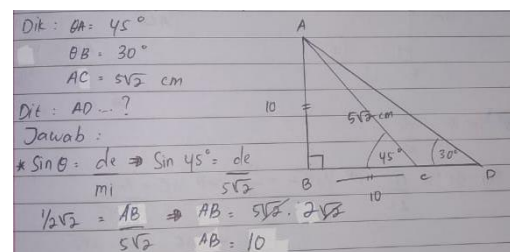 Dik : θA = 45°
θB = 30°
AC = 5√2 cm
Dit : AD ... ?
Jawab :
* Sin θ = de/mi ⇒ Sin 45° = de/5√2
1/2√2 = AB/5√2 ⇒ AB = 5√2 . 2√2
AB = 10
A
10
5√2 cm
45°
30°
B
C
D
10